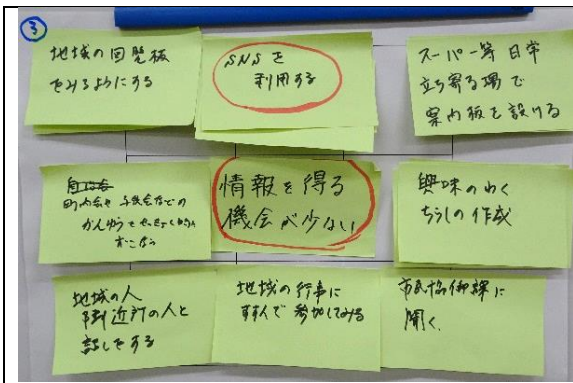 ③
地域の回覧板
をみるようにする
SNSを
利用する
スーパー等 日常
立ち寄る場で
案内板を設ける
町内会や 子供会などの
かんゆうをせっきょく的に
おこなう
情報を得る
機会が少ない
興味のわく
ちらしの作成
地域の人
隣近所の人と
話しをする
地域の行事に
すすんで参加してみる
市民協働課に
聞く